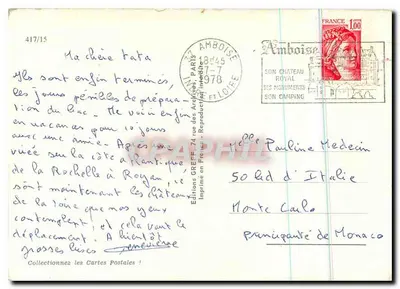 417/15
Ma chère tata
Ils sont enfin terminés,
les jours pénibles de prépara-
tion du bac. Me voici enfin
en vacances pour 10 jours
avec une amie. Après une
virée sur la côte atlantique
de la Rochelle à Royan, ce
sont maintenant les châteaux
de la Loire que nos yeux
contemplent ! et cela vaut le
déplacement. A bientôt
grosses bises Geneviève
Collectionnez les Cartes Postales !
Editions GREFF, 74 rue des Archives, PARIS
Imprimé en France - Reproduction interdite
37 AMBOISE
18H45
7-7
1978
INDRE ET LOIRE
Amboise
SON CHATEAU
ROYAL
SES MONUMENTS
SON CAMPING
FRANCE
1,00
Pauline Medecin
50 bd d'Italie
Monte Carlo
principauté de Monaco
CPAPHIL.COM